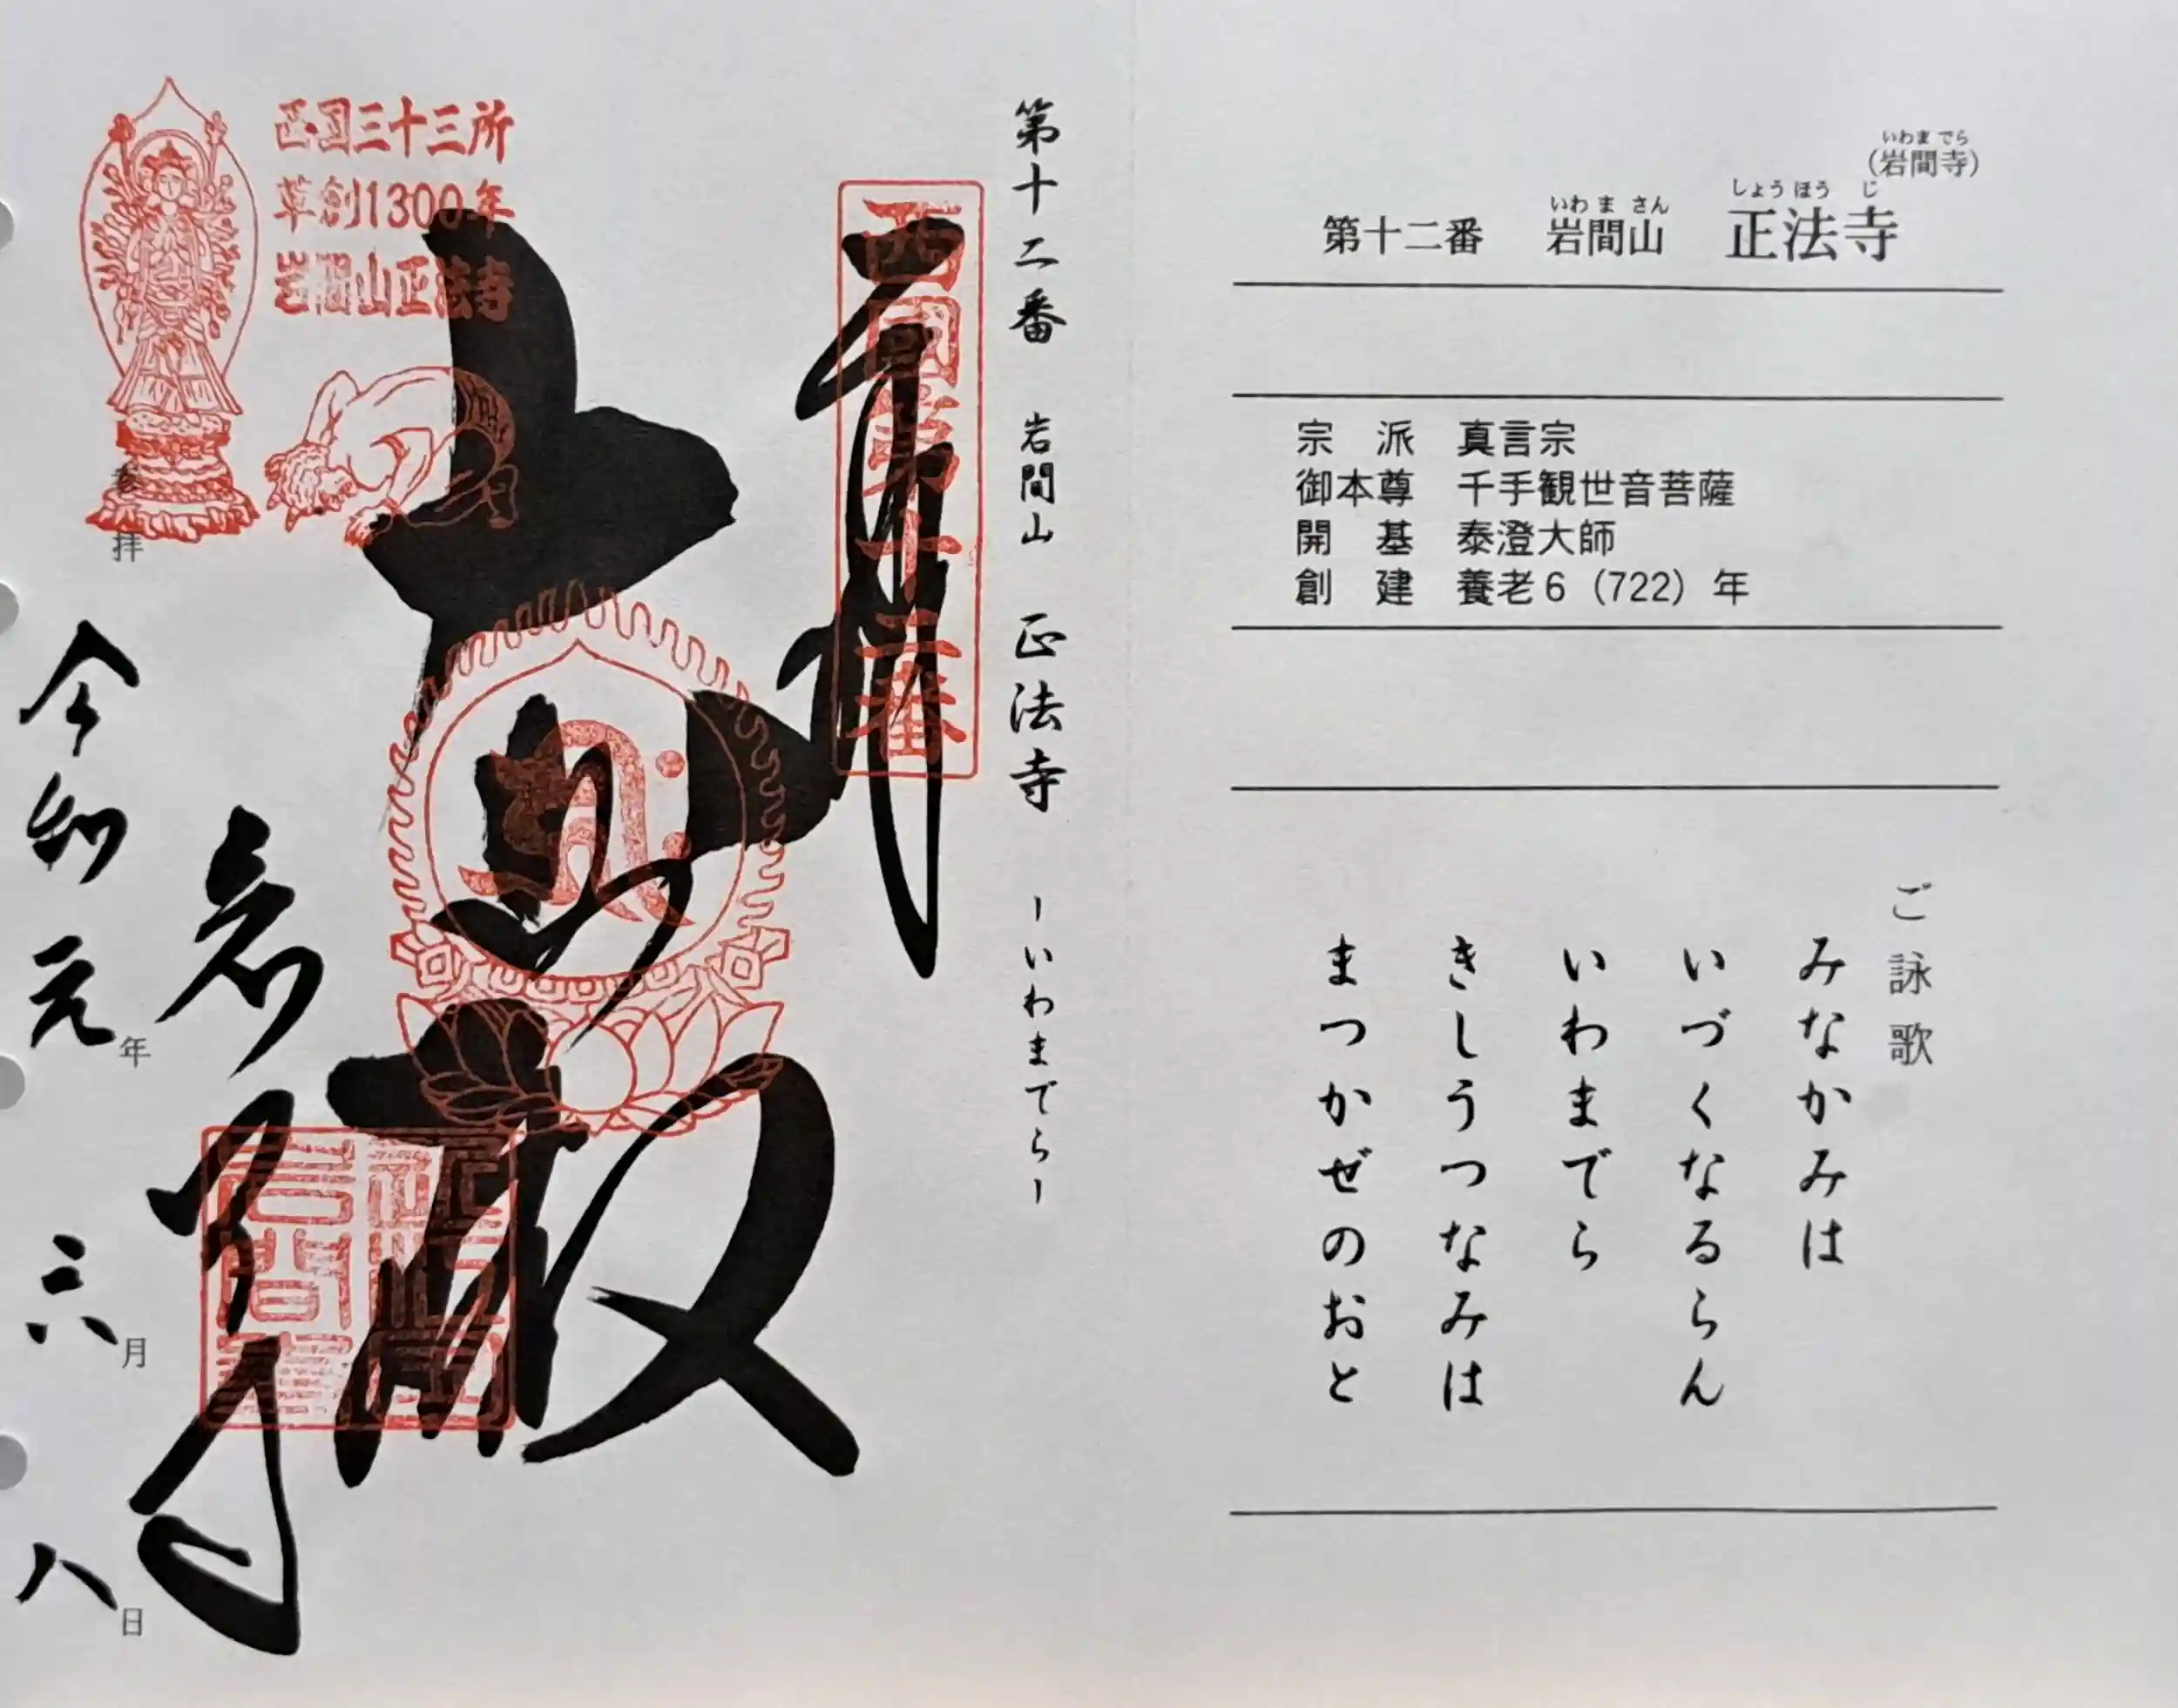 (岩間寺)
いわま でら
第十二番 岩間山 正法寺
いわ ま さん しょう ほう じ
宗 派 真言宗
御本尊 千手観世音菩薩
開 基 泰澄大師
創 建 養老6(722)年
ご詠歌
みなかみは
いづくなるらん
いわまでら
きしうつなみは
まつかぜのおと
第十二番 岩間山 正法寺 ーいわまでらー
西國第十二番
西国三十三所
草創1300年
岩間山正法寺
大悲殿
岩間寺
参拝
令和元年六月八日